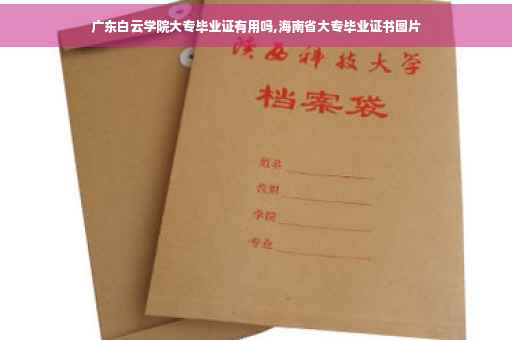 广东白云学院大专毕业证有用吗,海南省大专毕业证书图片
陕西科技大学
档案袋
姓名
学院
专业